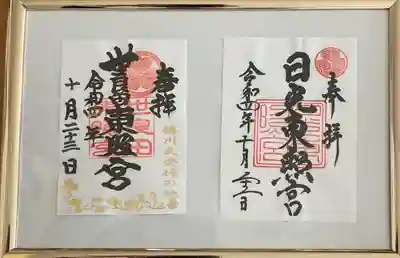 奉拝
日光東照宮
令和四年十月
奉拝
世良田東照宮
令和四年
十月二十三日